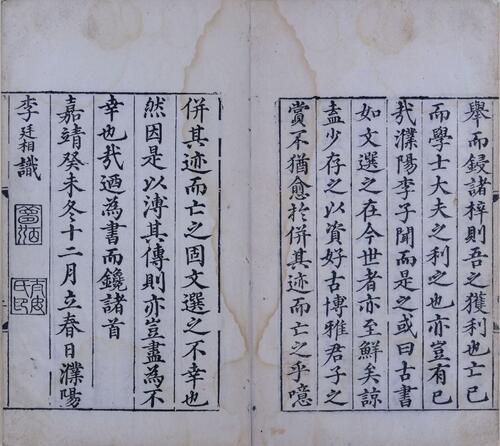 舉而鋟諸梓則吾之獲利也亡已
而學士大夫之利之也亦豈有已
哉濮陽李子聞而是之或曰古書
如文選之在今世者亦至鮮矣諒
盍少存之以資好古博雅君子之
賞不猶愈於併其迹而亡之乎噫
併其迹而亡之固文選之不幸也
然因是以溥其傳則亦豈盡為不
幸也哉迺為書而鑱諸首
嘉靖癸未冬十二月立春日濮陽
李廷相識